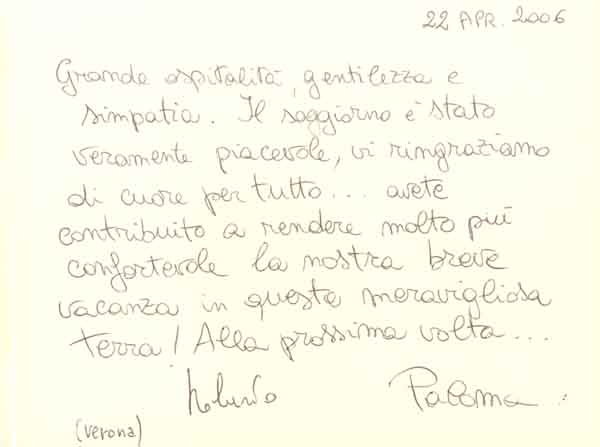 22 APR. 2006
Grande ospitalità, gentilezza e
simpatia. Il soggiorno è stato
veramente piacevole, vi ringraziamo
di cuore per tutto... avete
contribuito a rendere molto più
confortevole la nostra breve
vacanza in questa meravigliosa
terra! Alla prossima volta...
Paloma
(verona)